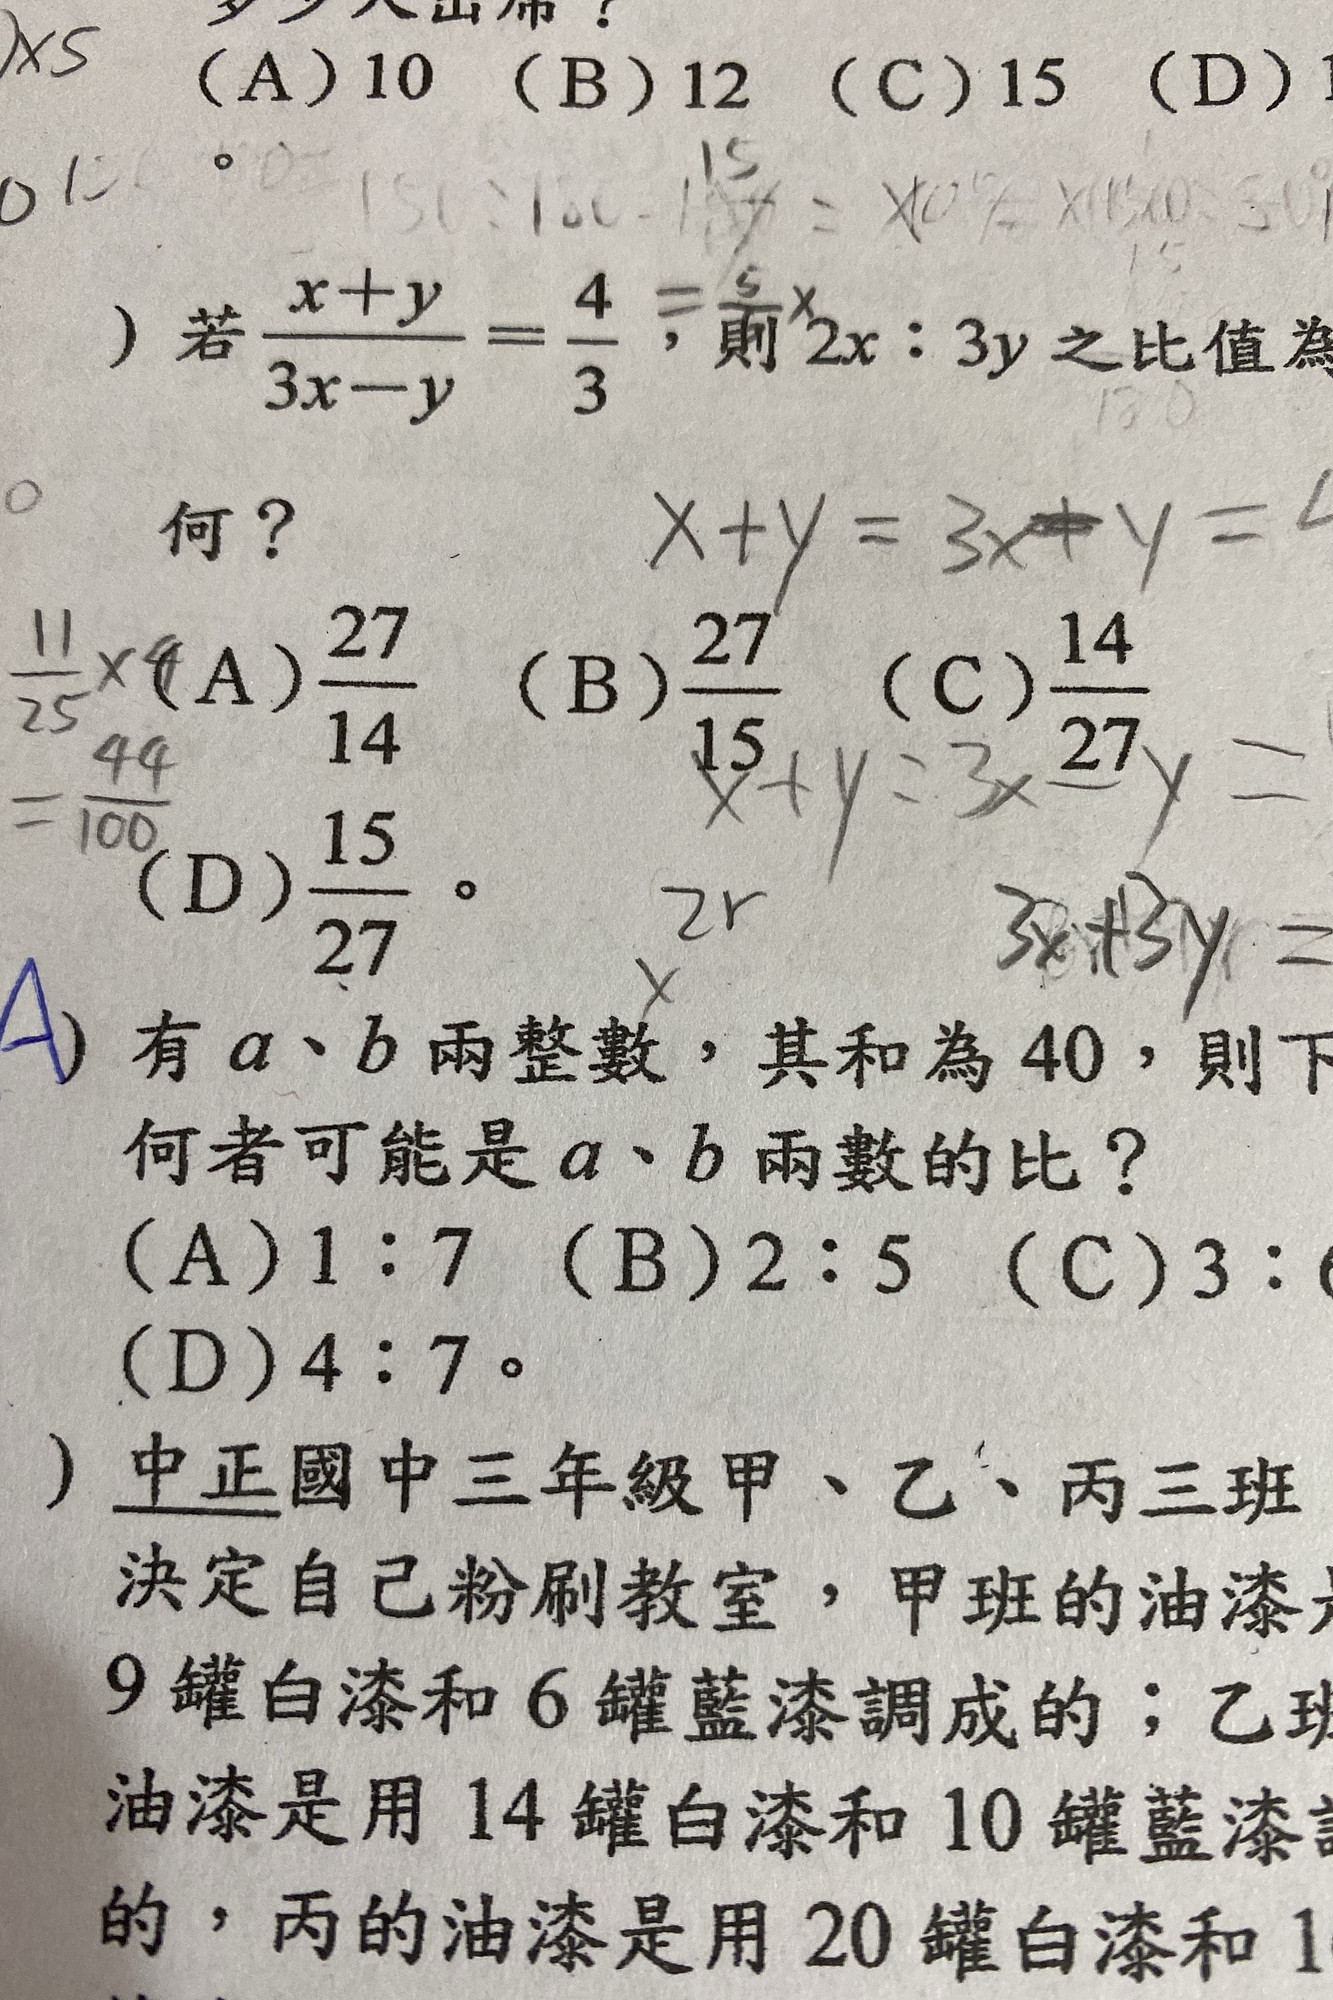 )×5
(A)10 (B)12 (C)15 (D)1
。
15
)若 x+y/3x−y = 4/3 ,則 2x:3y 之比值為
= 5/ x
何?
x+y = 3x y =
11/25 ×
(A)27/14 (B)27/15 (C)14/27
= 44/100
x+y = 3x − y =
(D)15/27 。
3x+3y =
x
A) 有 a、b 兩整數,其和為 40,則下
何者可能是 a、b 兩數的比?
(A)1:7 (B)2:5 (C)3:6
(D)4:7。
) 中正國中三年級甲、乙、丙三班
決定自己粉刷教室,甲班的油漆是
9 罐白漆和 6 罐藍漆調成的;乙班
油漆是用 14 罐白漆和 10 罐藍漆調
的,丙的油漆是用 20 罐白漆和 1